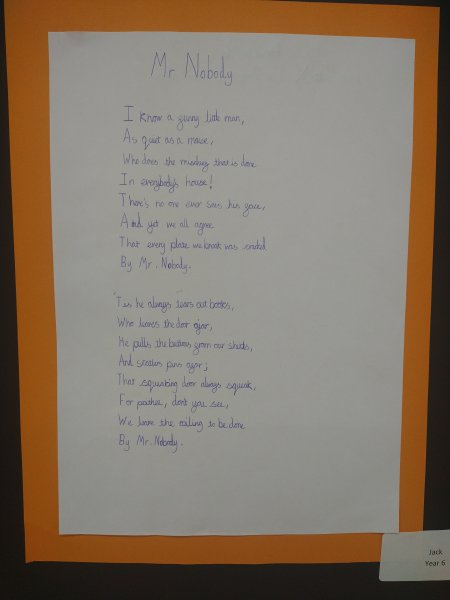 Mr Nobody
I know a funny little man,
As quiet as a mouse,
Who does the mischief that is done
In everybody's house!
There's no one ever sees his face,
And yet we all agree
That every plate we break was cracked
By Mr. Nobody.
Tis he always tears out books,
Who leaves the door ajar,
He pulls the buttons from our shirts,
And scatters pins afar;
That squeaking door always squeak,
For don't you see,
We leave the oiling to be done
By Mr. Nobody.
Jack
Year 6